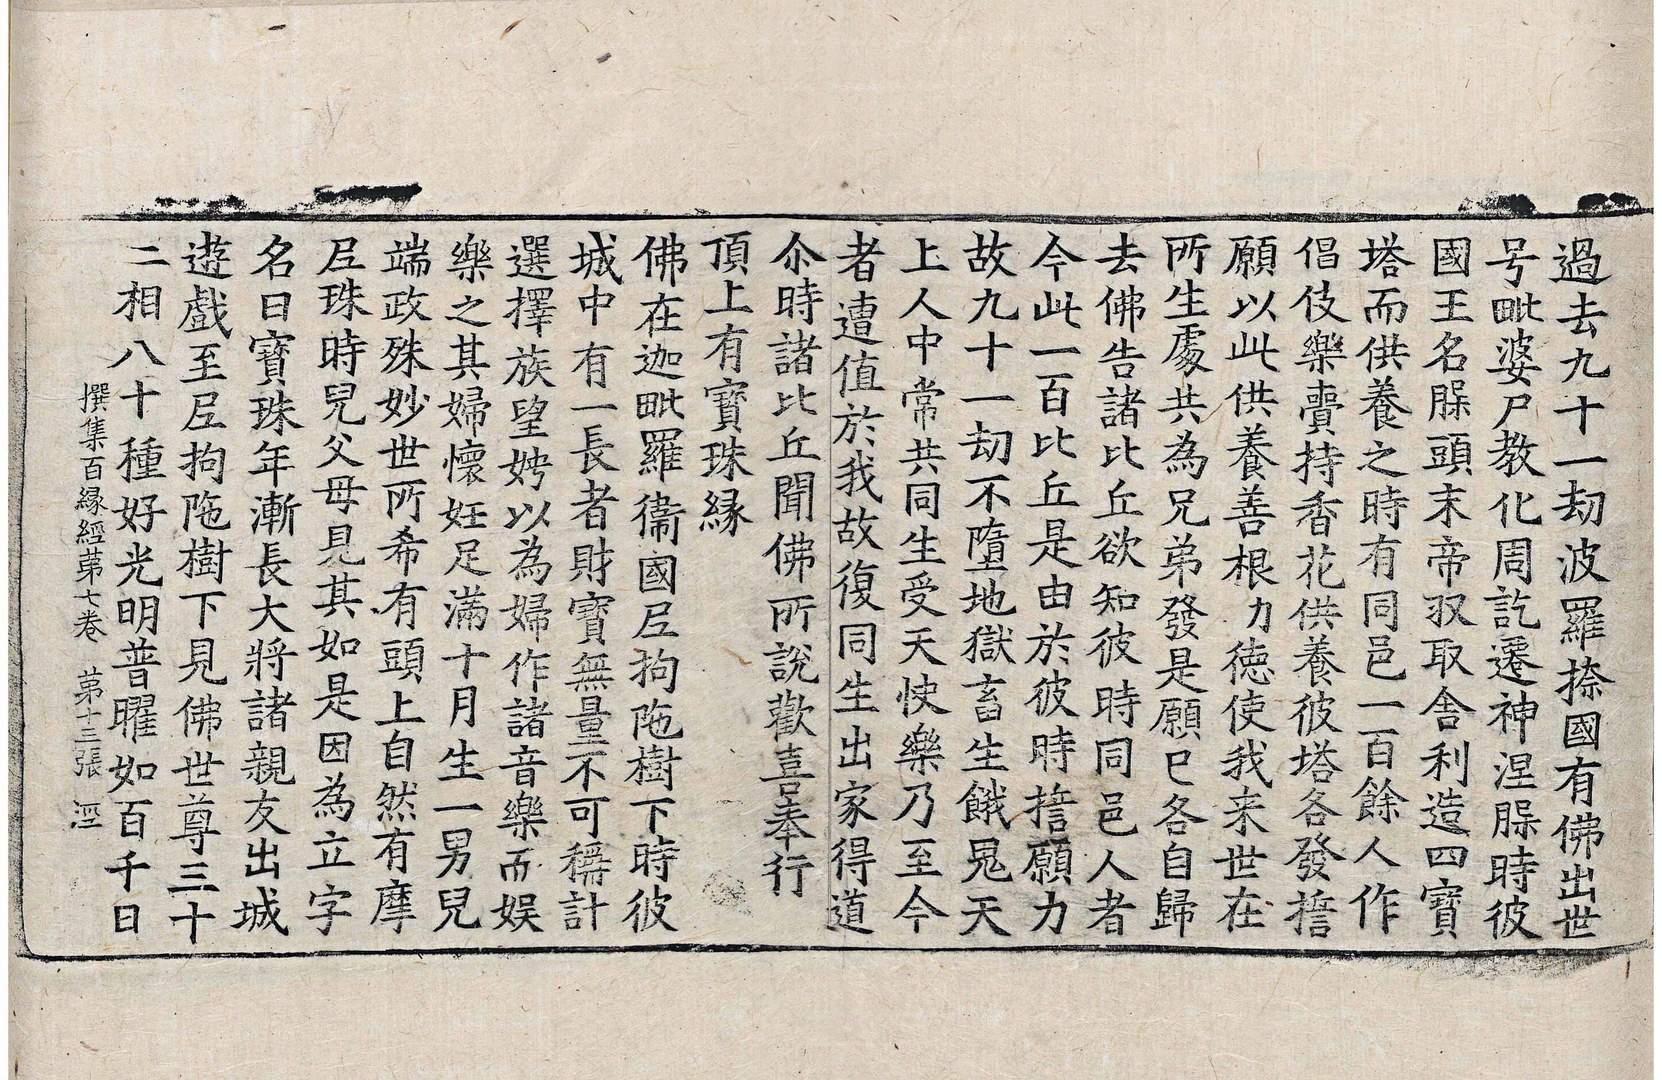 過去九十一劫波羅捺國有佛出世
号毗婆尸教化周訖遷神涅槃時彼
國王名槃頭末帝収取舍利造四寶
塔而供養之時有同邑一百餘人作
倡伎樂賫持香花供養彼塔各發誓
願以此供養善根力徳使我来世在
所生處共為兄弟發是願已各自歸
去佛告諸比丘欲知彼時同邑人者
今此一百比丘是由於彼時誓願力
故九十一劫不墮地獄畜生餓鬼天
上人中常共同生受天快樂乃至今
者遭值於我故復同生出家得道
尒時諸比丘聞佛所說歡喜奉行
頂上有寶珠縁
佛在迦毗羅衞國尼拘陁樹下時彼
城中有一長者財寶無量不可稱計
選擇族望娉以為婦作諸音樂而娱
樂之其婦懷妊足滿十月生一男兒
端政殊妙世所希有頭上自然有摩
尼珠時兒父母見其如是因為立字
名曰寶珠年漸長大將諸親友出城
遊戲至尼拘陁樹下見佛世尊三十
二相八十種好光明普曜如百千日
撰集百縁經苐七卷 苐十三張 涇